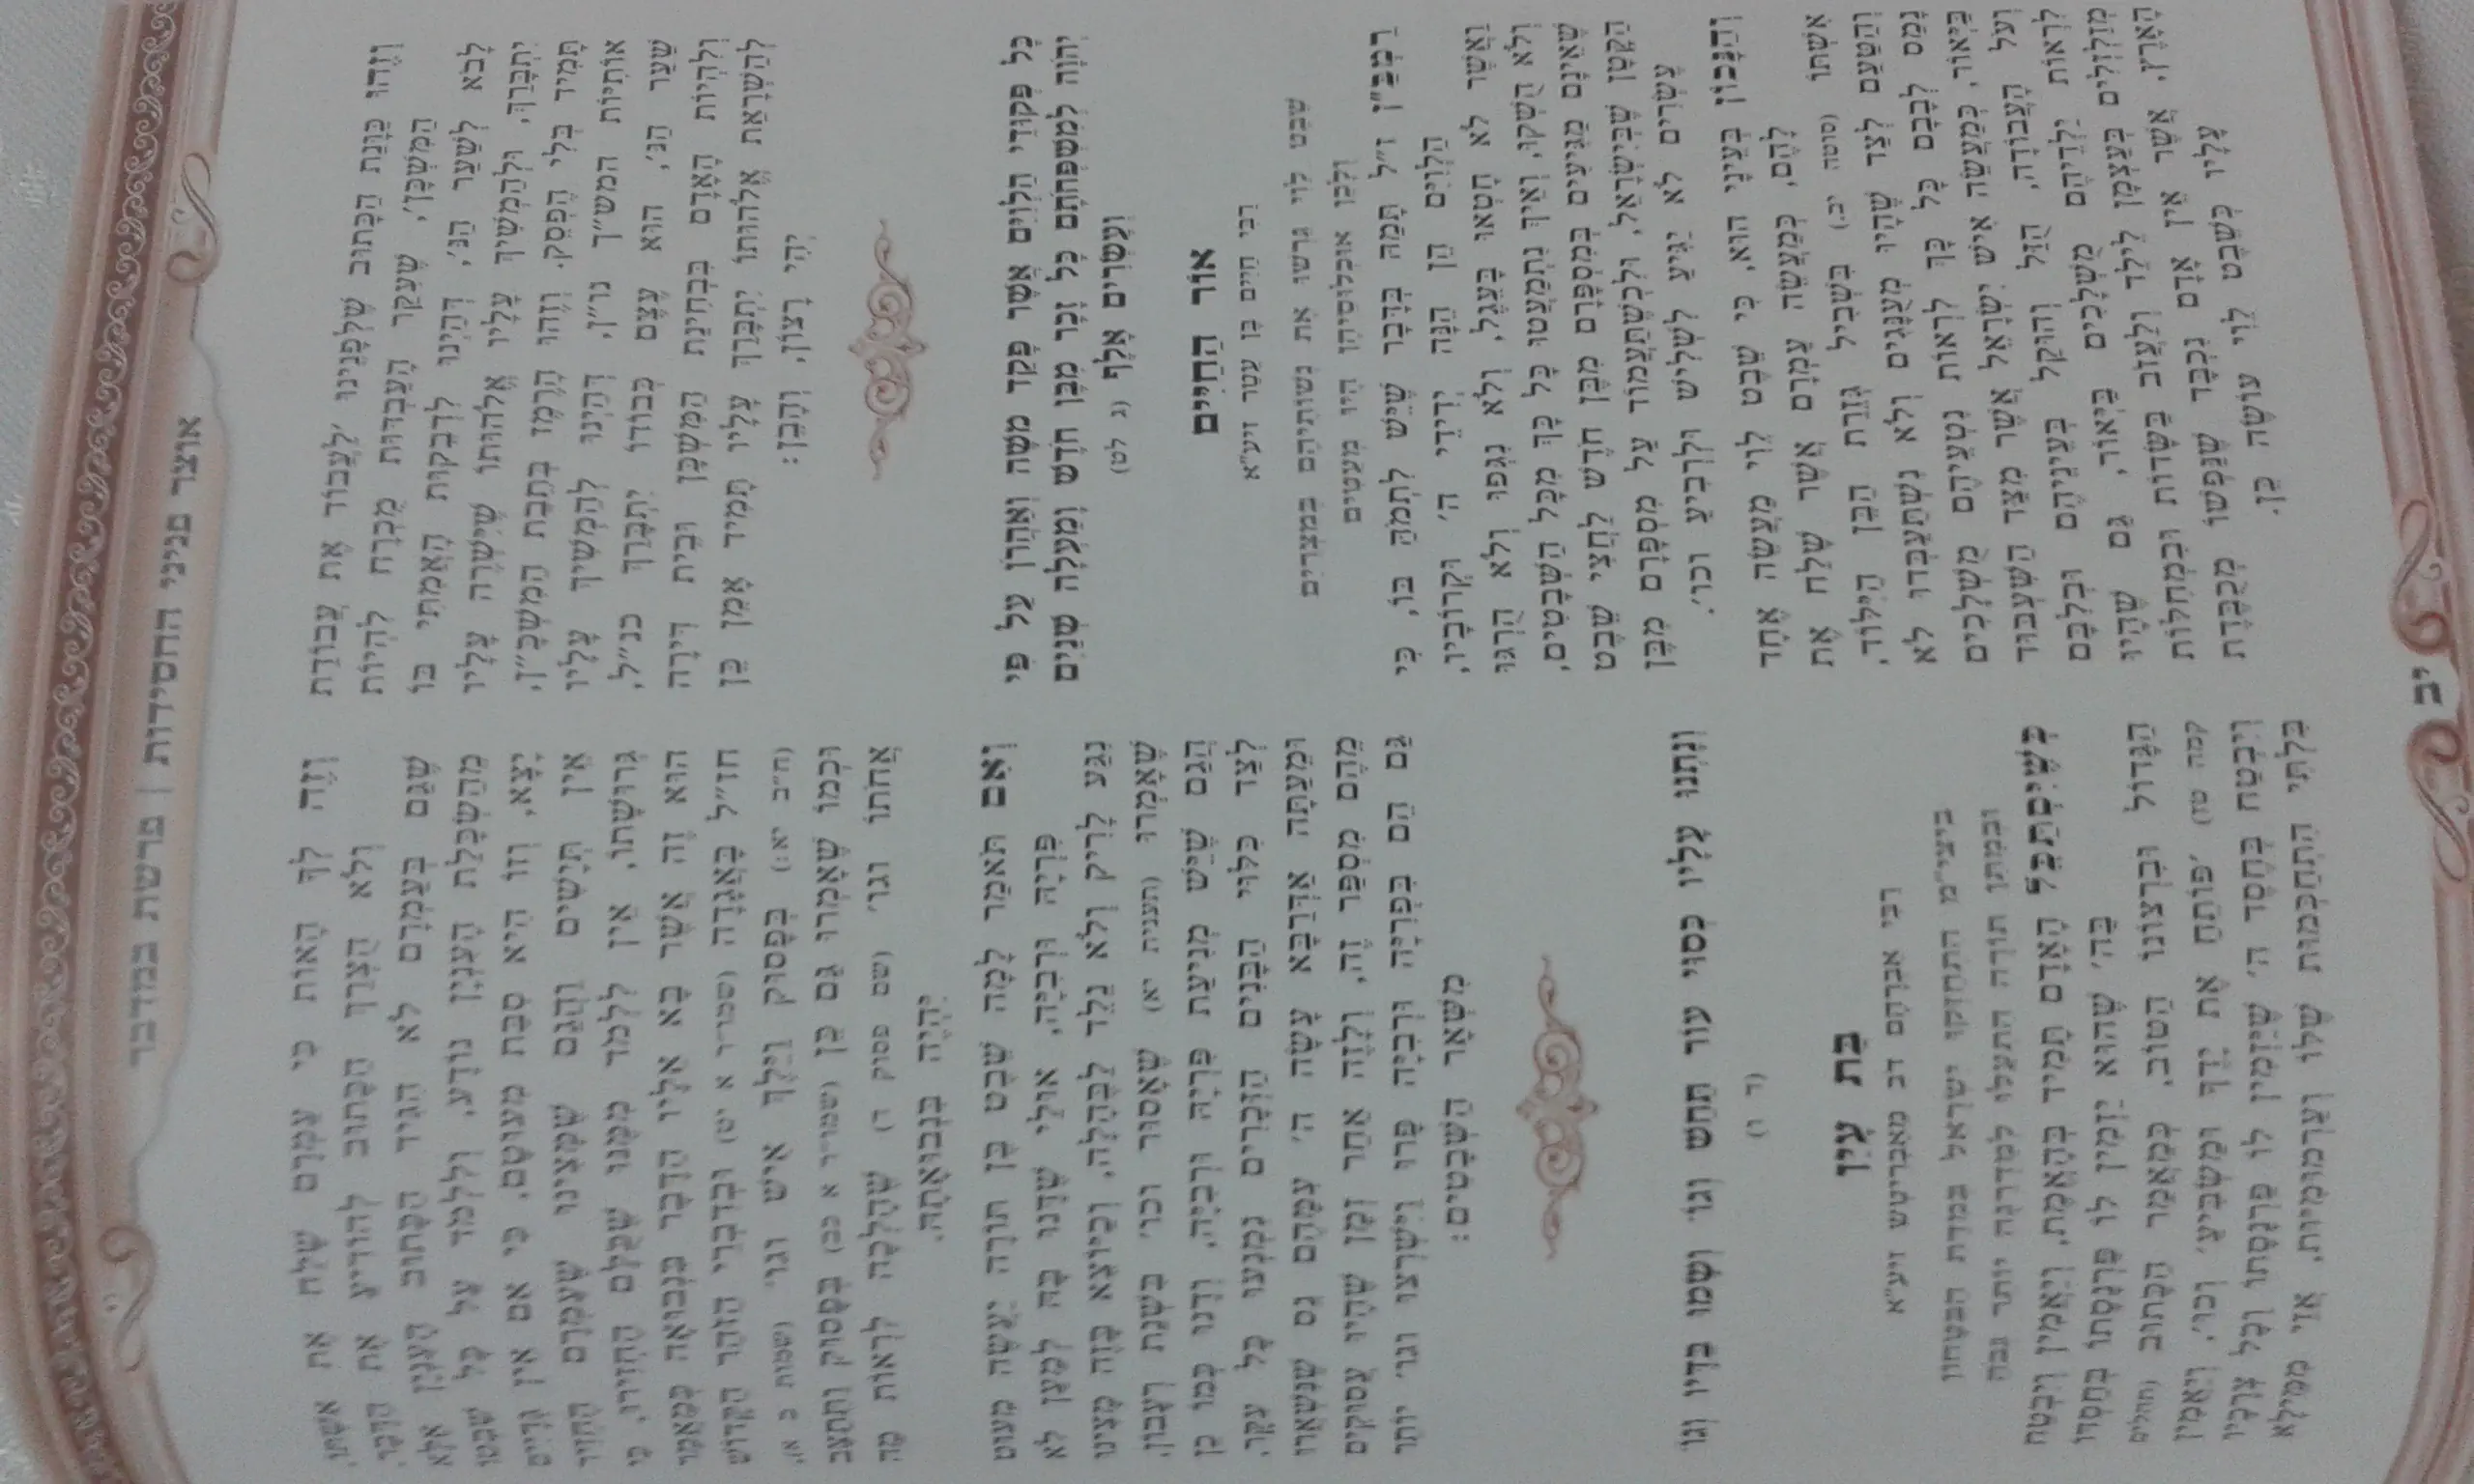 אוצר פניני החסידות | פרשת במדבר
וְזֶהוּ כַּוָּנַת הַכָּתוּב שֶׁלְּפָנֵינוּ 'לַעֲבוֹד אֶת עֲבוֹדַת
הַמִּשְׁכָּן', שֶׁעִקַּר הָעַבְדוּת מֻכְרַח לִהְיוֹת
לָבֹא לְשַׁעַר הַנ', דְּהַיְנוּ לִדְבֵקוּת הָאֲמִתִּי בּוֹ
יִתְבָּרַךְ, וּלְהַמְשִׁיךְ עָלָיו אֱלֹהוּתוֹ שֶׁיִּשְׁרֶה עָלָיו
תָּמִיד בְּלִי הֶפְסֵק. וְזֶהוּ הָרֶמֶז בְּתֵבַת הַמִּשְׁכָּ"ן,
אוֹתִיּוֹת המש"ך נו"ן, דְּהַיְנוּ לְהַמְשִׁיךְ עָלָיו
שַׁעַר הַנ', הוּא עֶצֶם כְּבוֹדוֹ יִתְבָּרַךְ כנ"ל,
וְלִהְיוֹת הָאָדָם בִּבְחִינַת הַמִּשְׁכָּן וּבֵית דִּירָה
לְהַשְׁרָאַת אֱלֹהוּתוֹ יִתְבָּרַךְ עָלָיו תָּמִיד אָמֵן כֵּן
יְהִי רָצוֹן, וְהָבֵן:
כָּל פְּקוּדֵי הַלְוִיִּם אֲשֶׁר פָּקַד מֹשֶׁה וְאַהֲרֹן עַל פִּי
יְהֹוָה לְמִשְׁפְּחֹתָם כָּל זָכָר מִבֶּן חֹדֶשׁ וָמַעְלָה שְׁנַיִם
וְעֶשְׂרִים אָלֶף (ג לט)
אוֹר הַחַיִּים
רבי חיים בן עטר זיע"א
שבט לוי גרשו את נשותיהם במצרים
ולכן אוכלוסיהן היו מעטים
רַמְבַּ"ן ז"ל תָּמַהּ בַּדָּבָר שֶׁיֵּשׁ לִתְמֹהַּ בּוֹ, כִּי
הַלְוִיִּם הֵן הֵנָּה יְדִידֵי ה' וּקְרוֹבָיו,
וַאֲשֶׁר לֹא חָטְאוּ בָּעֵגֶל, וְלֹא נִגְּפוּ וְלֹא הֻרְגוּ
וְלֹא הֻשְׁקוּ, וְאֵיךְ נִתְמַעֲטוּ כָּל כָּךְ מִכָּל הַשְּׁבָטִים,
שֶׁאֵינָם מַגִּיעִים בְּמִסְפָּרָם מִבֶּן חֹדֶשׁ לַחֲצִי שֵׁבֶט
הַקָּטָן שֶׁבְּיִשְׂרָאֵל, וּלִכְשֶׁתַּעֲמוֹד עַל מִסְפָּרָם מִבֶּן
עֶשְׂרִים לֹא יַגִּיעַ לִשְׁלִישׁ וְלִרְבִיעַ וכו'.
וְהַנָּכוֹן בְּעֵינַי הוּא, כִּי שֵׁבֶט לֵוִי מַעֲשֶׂה אֶחָד
לָהֶם, כְּמַעֲשֵׂה עַמְרָם אֲשֶׁר שִׁלַּח אֶת
אִשְׁתּוֹ (סוטה יב.) בִּשְׁבִיל גְּזֵרַת הַבֵּן הַיִּלּוֹד,
וְהַטַּעַם לְצַד שֶׁהָיוּ מְעֻנָּגִים וְלֹא נִשְׁתַּעְבְּדוּ לֹא
נָמֵס לְבָבָם כָּל כָּךְ לִרְאוֹת נִטְעֵיהֶם מֻשְׁלָכִים
בַּיְאוֹר, כְּמַעֲשֵׂה אִישׁ יִשְׂרָאֵל אֲשֶׁר מִצַּד הַשִּׁעְבּוּד
וְעֹל הָעֲבוֹדָה, הֻזַּל וְהוּקַל בְּעֵינֵיהֶם וּבְלִבָּם
לִרְאוֹת יַלְדֵיהֶם מֻשְׁלָכִים בַּיְאוֹר, גַּם שֶׁהָיוּ
מְזֻלְזָלִים בְּעַצְמָן לֵילֵד וְלָצוּב בַּשָּׂדוֹת וּבִמְחִלּוֹת
הָאָרֶץ, אֲשֶׁר אֵין אָדָם נִכְבָּד שֶׁנַּפְשׁוֹ מְכֻבֶּדֶת
עָלָיו כְּשֵׁבֶט לֵוִי עוֹשֶׂה כֵּן.
וְזֶה לְךָ הָאוֹת כִּי עַמְרָם שִׁלַּח אֶת אִשְׁתּוֹ,
וְלֹא הֻצְרַךְ הַכָּתוּב לְהוֹדִיעַ אֶת הַדָּבָר,
שֶׁגַּם בְּעַמְרָם לֹא הִגִּיד הַכָּתוּב הָעִנְיָן אֶלָּא
מֵהַשְׂכָּלַת הָעִנְיָן נוֹדַע, וְלִלְמֹד עַל כָּל שִׁבְטוֹ
יָצָא, וְזוֹ הִיא סִבַּת מִעוּטָם, כִּי אִם אֵין גְּדָיִים
אֵין תְּיָשִׁים וַהֲגַם שֶׁמָּצִינוּ שֶׁעַמְרָם הֶחֱזִיר
גְּרוּשָׁתוֹ, אֵין לִלְמֹד מִמֶּנּוּ שֶׁכֻּלָּם הֶחֱזִירוּ, כִּי
הוּא זֶה אֲשֶׁר בָּא אֵלָיו הַדָּבָר בִּנְבוּאָה כְּמַאֲמַר
חז"ל בָּאַגָּדָה (שמו"ר א יט) וּבְדִבְרֵי הַזֹּהַר הַקָּדוֹשׁ
(ח"ב יא:) בַּפָּסוּק וַיֵּלֶךְ אִישׁ וגו' (שמות ב א),
וּכְמוֹ שֶׁאָמְרוּ גַּם כֵּן (שמו"ר א כב) בַּפָּסוּק וַתֵּתַצַּב
אֲחֹתוֹ וגו' (שם פסוק ד) שֶׁהָלְכָה לִרְאוֹת מַה
יִּהְיֶה בִּנְבוּאָתָהּ.
וְאִם תֹּאמַר לָמָּה שֵׁבֶט בֶּן תּוֹרָה יַעֲשֶׂה מִעוּט
פְּרִיָּה וּרְבִיָּה, אוּלַי שֶׁדָּנוּ בָּהּ לִטְעַן לֹא
נִגַּע לָרִיק וְלֹא נֵלֵד לַבֶּהָלָה, וְכַיּוֹצֵא בָּזֶה מָצִינוּ
שֶׁאָמְרוּ (תענית יא) שֶׁאָסוּר וכו' בִּשְׁנַת רְעָבוֹן,
הֲגַם שֶׁיֵּשׁ מְנִיעַת פְּרִיָּה וּרְבִיָּה, וְדָנוּ כְּמוֹ כֵן
לְצַד כִּלּוּי הַבָּנִים הַזְּכָרִים נִמְנְעוּ כָּל עִקָּר,
וּמֵעַתָּה אַדְּרַבָּא עָשָׂה ה' עִמָּהֶם נֵס שֶׁנִּשְׁאֲרוּ
מֵהֶם מִסְפָּר זֶה, וְלָזֶה אַחַר זְמַן שֶׁהָיוּ עֲסוּקִים
גַּם הֵם בִּפְרִיָּה וּרְבִיָּה פָּרוּ וַיִּשְׁרְצוּ וגו' יוֹתֵר
מִשְּׁאָר הַשְּׁבָטִים:
וְנָתְנוּ עָלָיו כְּסוּי עוֹר תַּחַשׁ וְגוֹ' וְשָׂמוּ בַּדָּיו וְגוֹ'
(ד ו)
בַּת עַיִן
רבי אברהם דב מאבריטש זיע"א
ביצי"מ התחזקו ישראל במדת הבטחון
ובמתן תורה התעלו למדרגה יותר גבוה
כְּשֶׁיִּסְתַּכֵּל הָאָדָם תָּמִיד בְּהָאֱמֶת, וְיַאֲמִין וְיִבְטַח
בַּה' שֶׁהוּא יַזְמִין לוֹ פַּרְנָסָתוֹ בְּחַסְדּוֹ
הַגָּדוֹל וּבִרְצוֹנוֹ הַטּוֹב, כְּמַאֲמַר הַכָּתוּב (תהלים
קמה טז) 'פּוֹתֵחַ אֶת יָדֶךָ וּמַשְׂבִּיעַ' וְכוּ', וְיַאֲמִין
וְיִבְטַח בְּחֶסֶד ה' שֶׁיַּזְמִין לוֹ פַּרְנָסָתוֹ וְכָל צְרָכָיו
בִּלְתִּי הִתְחַכְּמוּת שֶׁלּוֹ וְעַרְמוּמִיּוּת, אֲזַי מִמֵּילָא
יב